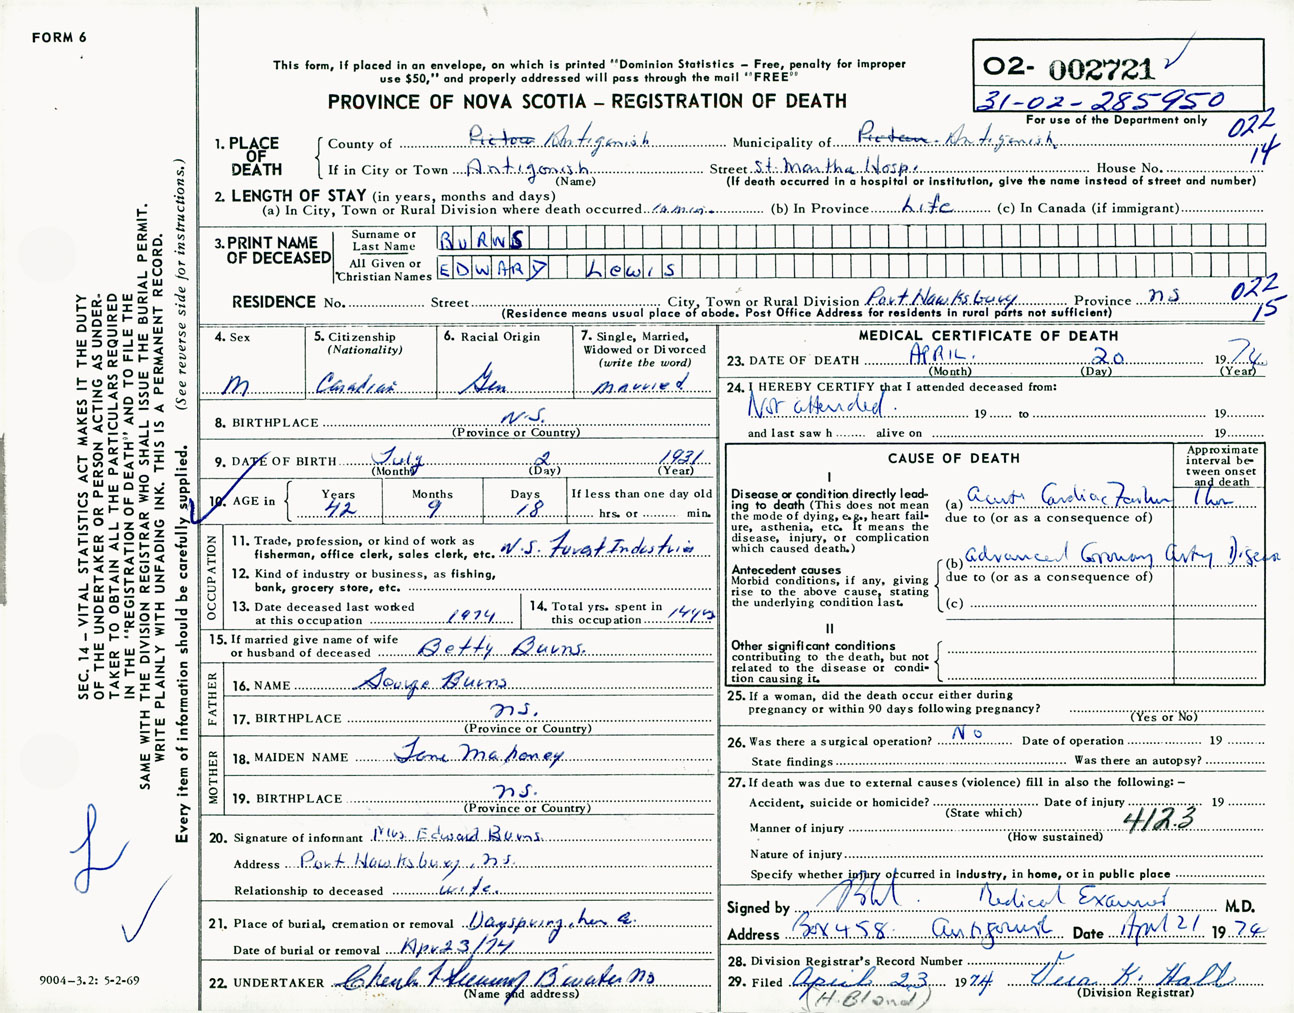 FORM 6
This form, if placed in an envelope, on which is printed "Dominion Statistics – Free, penalty for improper
use $50," and properly addressed will pass through the mail "FREE"
PROVINCE OF NOVA SCOTIA – REGISTRATION OF DEATH
02- 002721
31-02-285950
For use of the Department only
022
14
1. PLACE OF DEATH
County of Pictou Antigonish Municipality of Pictou Antigonish
If in City or Town Antigonish Street St. Martha Hosp. House No.
(Name) (If death occurred in a hospital or institution, give the name instead of street and number)
2. LENGTH OF STAY (in years, months and days)
(a) In City, Town or Rural Division where death occurred (b) In Province Life (c) In Canada (if immigrant)
3. PRINT NAME OF DECEASED
Surname or Last Name BURNS
All Given or Christian Names EDWARD Lewis
022
15
RESIDENCE No. Street City, Town or Rural Division Port Hawksbury Province NS
(Residence means usual place of abode. Post Office Address for residents in rural parts not sufficient)
4. Sex
M
5. Citizenship (Nationality)
Canadian
6. Racial Origin
Ger
7. Single, Married, Widowed or Divorced (write the word)
married
8. BIRTHPLACE N.S.
(Province or Country)
9. DATE OF BIRTH July 2 1931
(Month) (Day) (Year)
10. AGE in Years 42 Months 9 Days 18 If less than one day old
hrs. or min.
OCCUPATION
11. Trade, profession, or kind of work as
fisherman, office clerk, sales clerk, etc. N.S. Forest Industries
12. Kind of industry or business, as fishing,
bank, grocery store, etc.
13. Date deceased last worked
at this occupation 1974
14. Total yrs. spent in
this occupation 14 yrs
15. If married give name of wife
or husband of deceased Betty Burns.
FATHER
16. NAME George Burns
17. BIRTHPLACE N.S.
(Province or Country)
MOTHER
18. MAIDEN NAME Mahoney
19. BIRTHPLACE N.S.
(Province or Country)
20. Signature of informant Mrs Edward Burns
Address Port Hawksbury, N.S.
Relationship to deceased wife.
21. Place of burial, cremation or removal Dayspring,
Date of burial or removal Apr 23/74
22. UNDERTAKER B'water NS
(Name and address)
MEDICAL CERTIFICATE OF DEATH
23. DATE OF DEATH APRIL 20 1974
(Month) (Day) (Year)
24. I HEREBY CERTIFY that I attended deceased from:
Not attended. 19 to 19
and last saw h alive on 19
CAUSE OF DEATH
Approximate interval between onset and death
I
Disease or condition directly lead-
ing to death (This does not mean
the mode of dying, e.g., heart fail-
ure, asthenia, etc. It means the
disease, injury, or complication
which caused death.)
(a) Acute Cardiac Failure 1 hr
due to (or as a consequence of)
Antecedent causes
Morbid conditions, if any, giving
rise to the above cause, stating
the underlying condition last.
(b) Advanced Coronary Artery Disease
due to (or as a consequence of)
(c)
II
Other significant conditions
contributing to the death, but not
related to the disease or condi-
tion causing it.
25. If a woman, did the death occur either during
pregnancy or within 90 days following pregnancy?
(Yes or No)
26. Was there a surgical operation? No Date of operation 19
State findings Was there an autopsy?
27. If death was due to external causes (violence) fill in also the following: –
Accident, suicide or homicide? Date of injury 19
(State which)
Manner of injury 4123
(How sustained)
Nature of injury
Specify whether injury occurred in industry, in home, or in public place
Signed by Medical Examiner M.D.
Address Box 458 Antigonish Date April 21 1974
28. Division Registrar's Record Number
29. Filed April 23 1974 Vera K. Hall
(H. Bland) (Division Registrar)
SEC. 14 – VITAL STATISTICS ACT MAKES IT THE DUTY
OF THE UNDERTAKER OR PERSON ACTING AS UNDER-
TAKER TO OBTAIN ALL THE PARTICULARS REQUIRED
IN THE "REGISTRATION OF DEATH" AND TO FILE THE
SAME WITH THE DIVISION REGISTRAR WHO SHALL ISSUE THE BURIAL PERMIT.
WRITE PLAINLY WITH UNFADING INK. THIS IS A PERMANENT RECORD.
Every item of information should be carefully supplied. (See reverse side for instructions.)
9004-3.2: 5-2-69